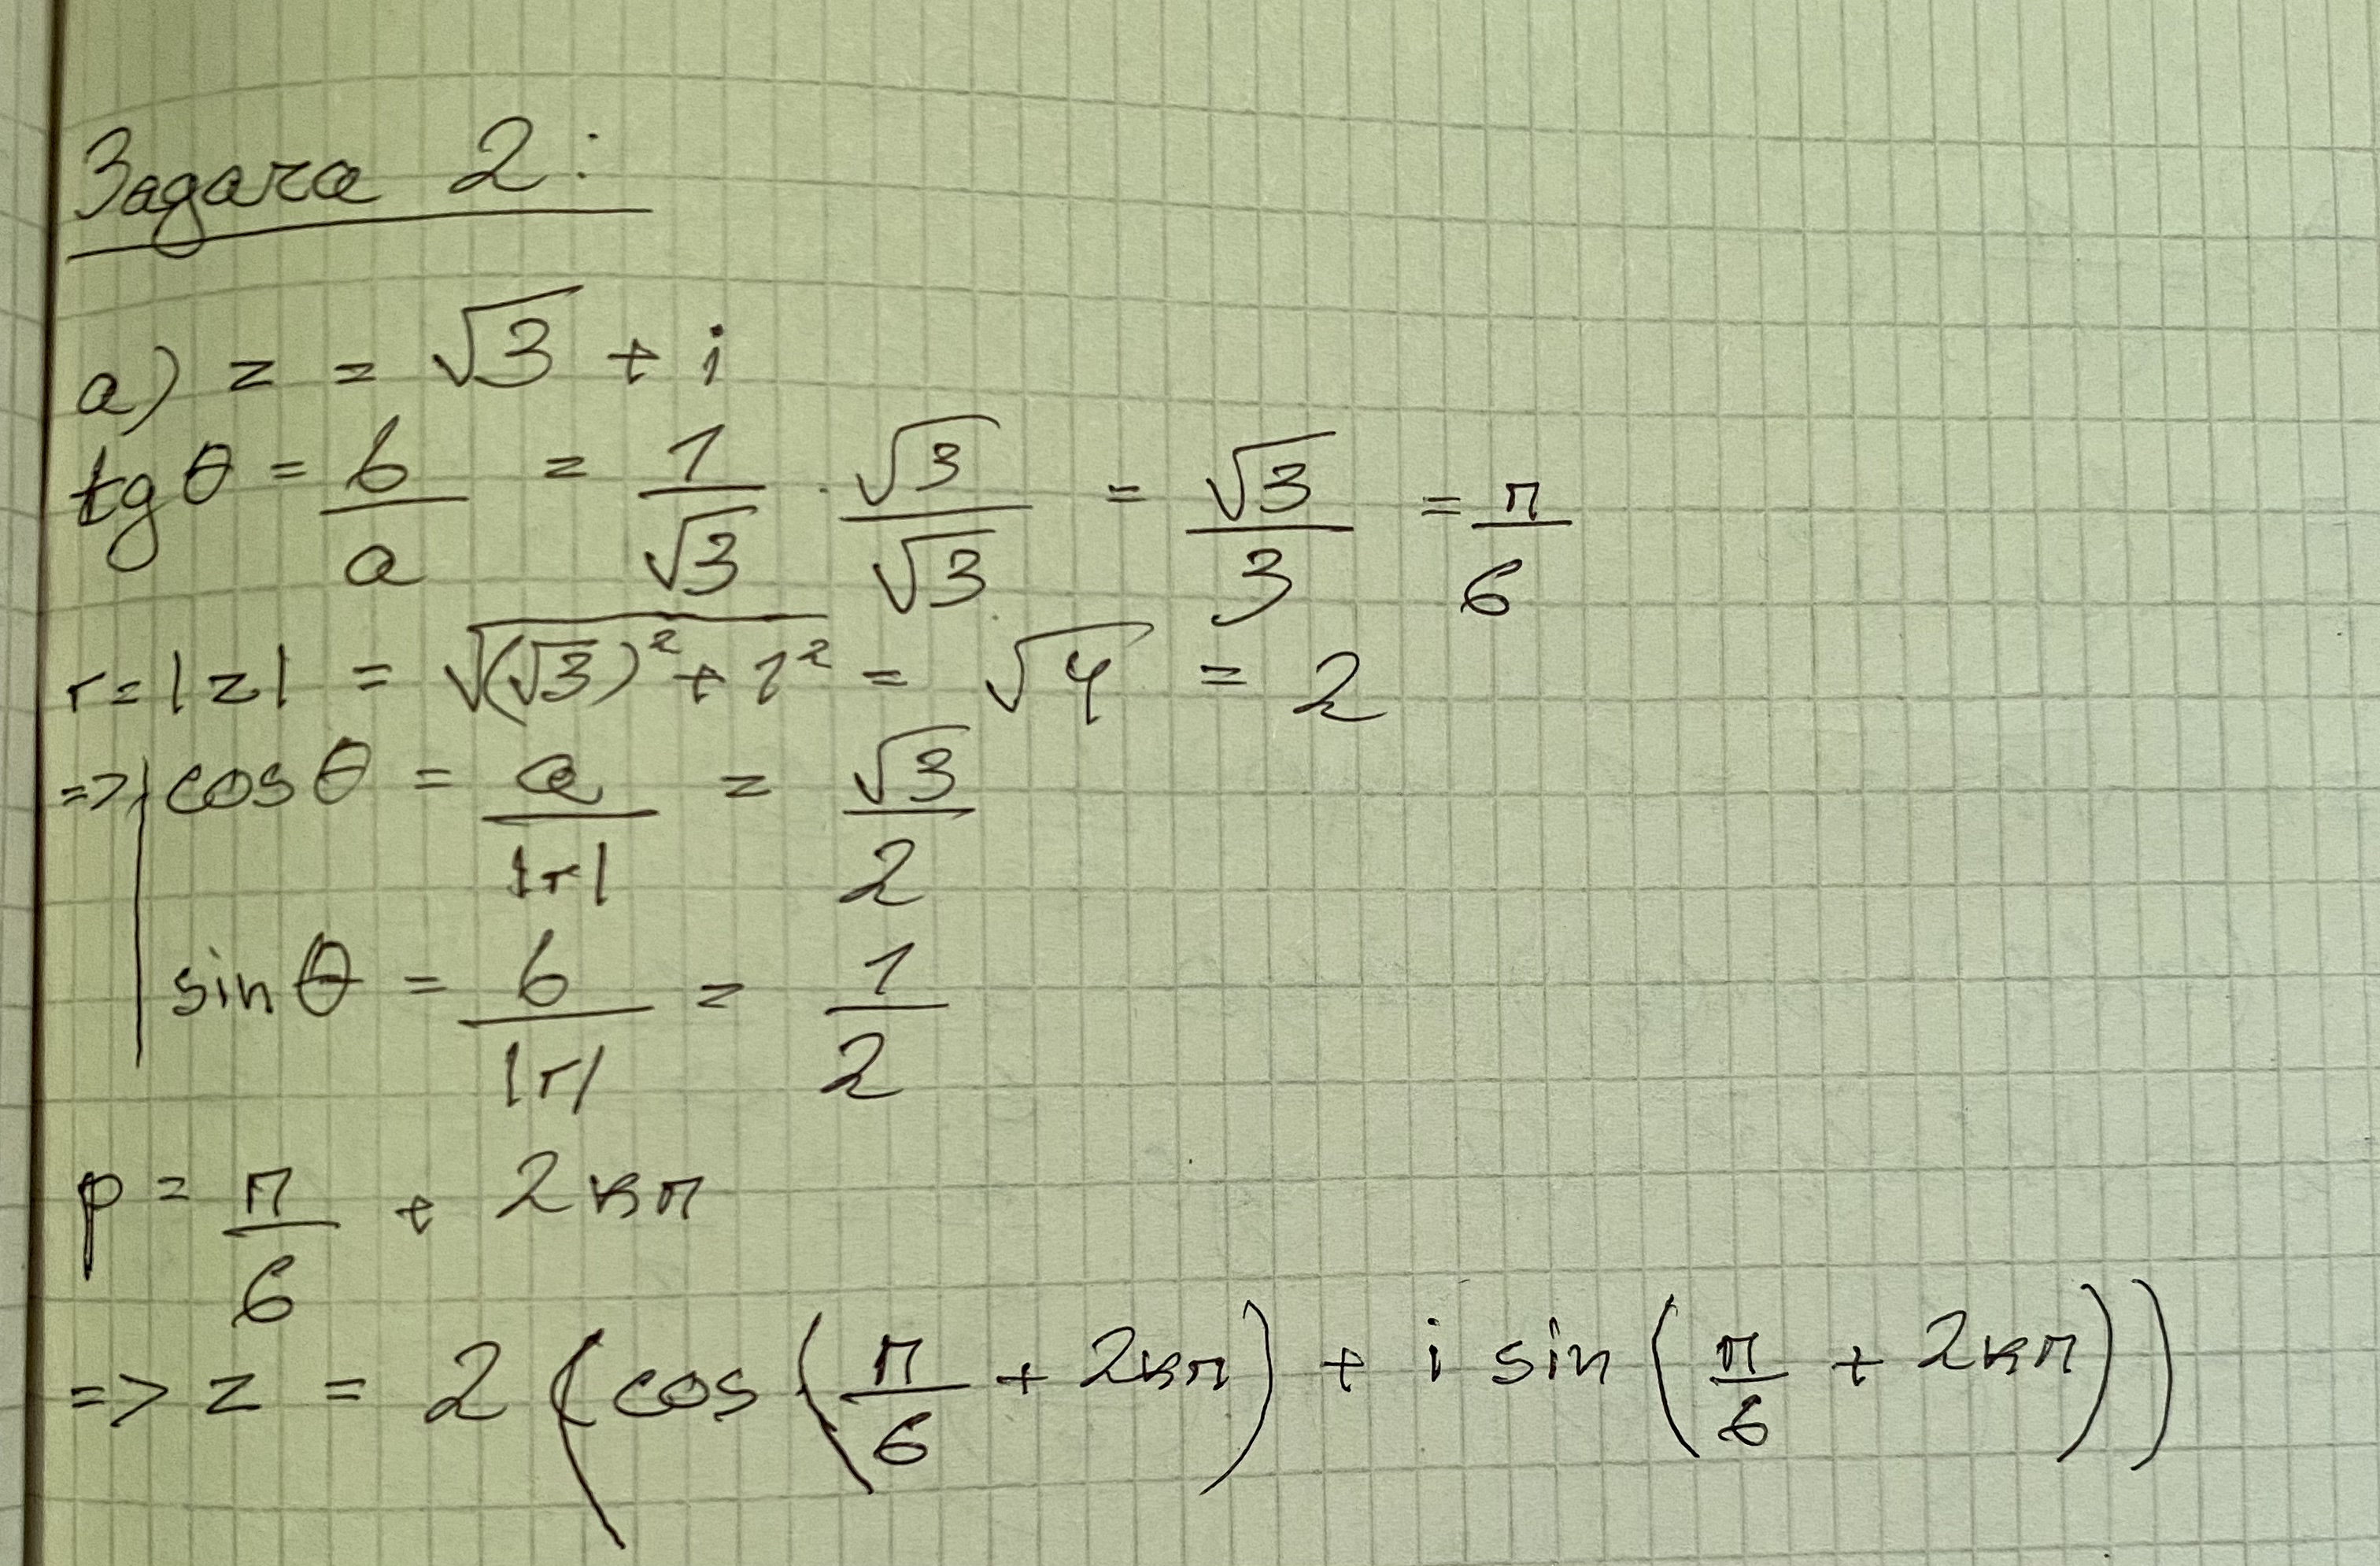 Задача 2:
a) z = √3 + i
tg θ = b/a = 1/√3 · √3/√3 = √3/3 = π/6
r = |z| = √((√3)² + 1²) = √4 = 2
=> | cos θ = a/|r| = √3/2
sin θ = b/|r| = 1/2
p = π/6 + 2kπ
=> z = 2 (cos (π/6 + 2kπ) + i sin (π/6 + 2kπ))